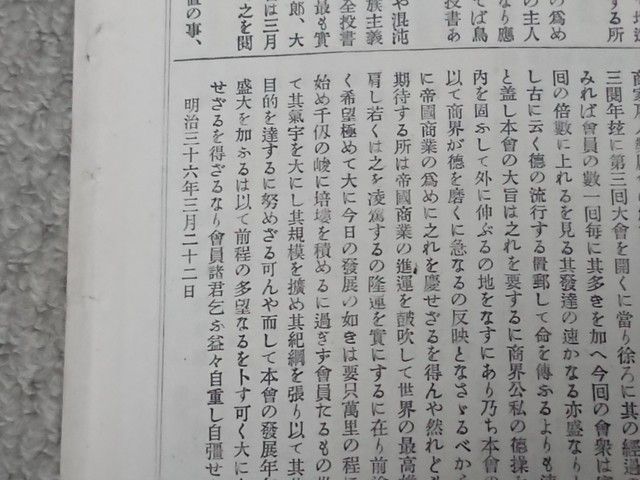 る所
爲め
の主人
なり應
てば鳥
投書あ
や混沌
族主義
全投書
最も實
郎、大
は三月
之を閲
置の事、
三閲年玆に第三回大會を開くに當り徐ろに其の經過
みれば會員の數一回毎に其多きを加へ今回の會衆は
回の倍數に上れるを見る其發達の速かなる亦盛なり
し古に云く德の流行する置郵して命を傳ふるよりも
と盖し本會の大旨は之れを要するに商界公私の德操
內を固ふして外に伸ぶるの地をなすにあり乃ち本會の
以て商界が德を磨くに急なるの反映となさゞるべか
に帝國商業の爲めに之れを慶せざるを得んや然れども
期待する所は帝國商業の進運を皷吹して世界の最高
肩し若くは之を凌駕するの隆運を實にするに在り前
く希望極めて大に今日の發展の如きは要只萬里の程に
始め千仭の峻に培塿を積めるに過ぎず會員たるもの
て其氣宇を大にし其規模を擴め其紀綱を張り以て其
目的を達するに努めざる可んや而して本會の發展年
盛大を加ふるは以て前程の多望なるを卜す可く大に
せざるを得ざるなり會員諸君乞ふ益々自重し自彊せ
明治三十六年三月二十二日